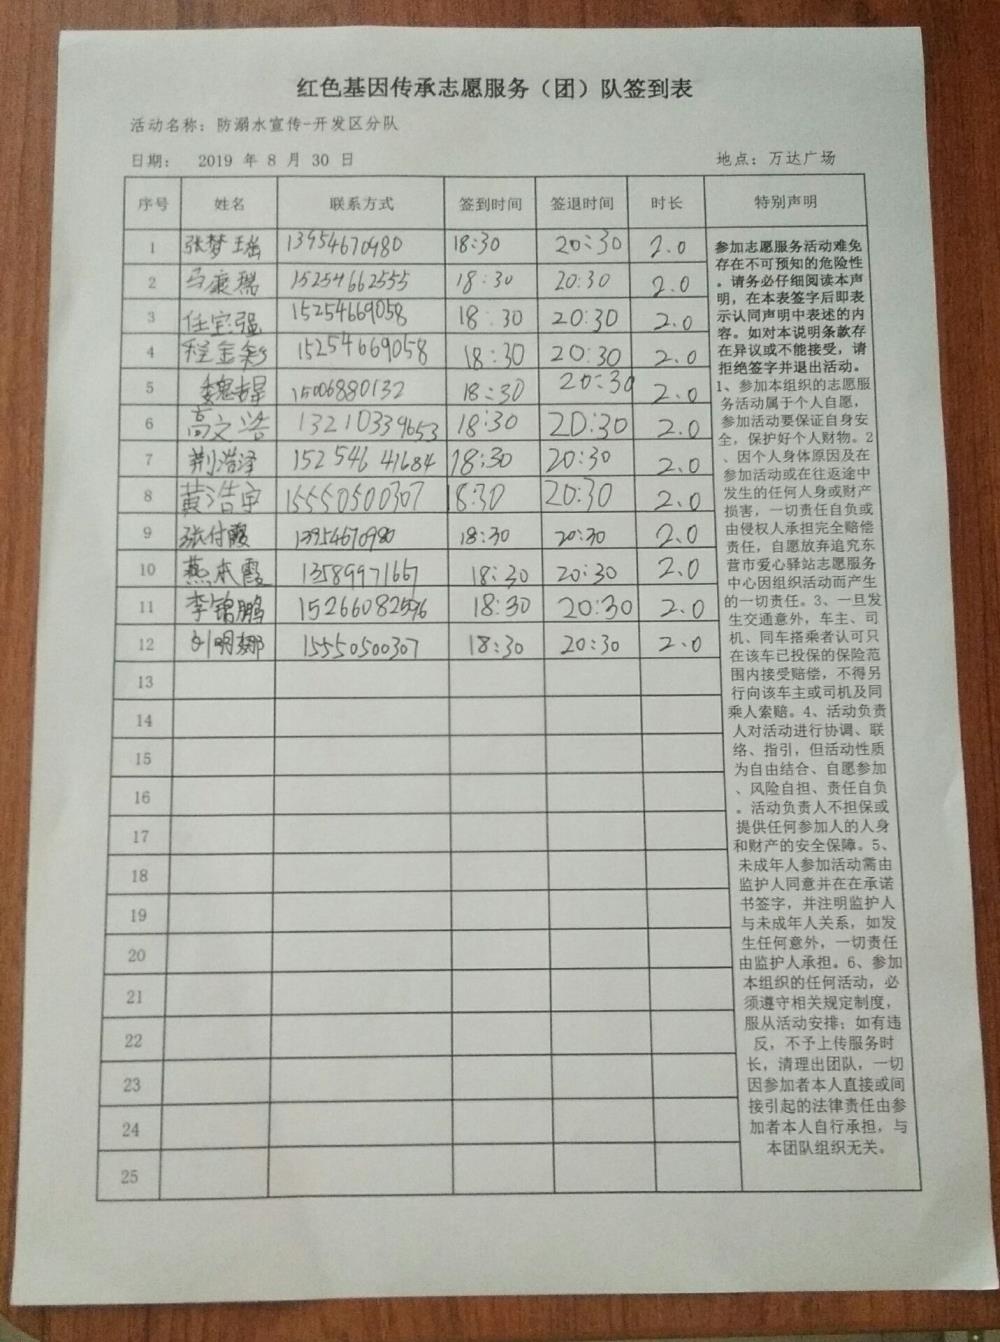 红色基因传承志愿服务（团）队签到表
活动名称：防溺水宣传-开发区分队
日期： 2019 年 8 月 30 日 地点：万达广场
序号 姓名 联系方式 签到时间 签退时间 时长 特别声明
1 张梦瑶 13954670980 18:30 20:30 2.0
2 马康瑞 15254662555 18:30 20:30 2.0
3 任宝强 15254669058 18:30 20:30 2.0
4 程金彩 15254669058 18:30 20:30 2.0
5 15006880132 18:30 20:30 2.0
6 高文浩 13210339653 18:30 20:30 2.0
7 荆浩泽 15254641684 18:30 20:30 2.0
8 黄浩宇 15550500307 18:30 20:30 2.0
9 张付霞 13954670980 18:30 20:30 2.0
10 燕本霞 13589971667 18:30 20:30 2.0
11 李锦鹏 15266082596 18:30 20:30 2.0
12 刘明娜 15550500307 18:30 20:30 2.0
13
14
15
16
17
18
19
20
21
22
23
24
25
参加志愿服务活动难免
存在不可预知的危险性
。请务必仔细阅读本声
明，在本表签字后即表
示认同声明中表述的内
容。如对本说明条款存
在异议或不能接受，请
拒绝签字并退出活动。
1、参加本组织的志愿服
务活动属于个人自愿，
参加活动要保证自身安
全，保护好个人财物。2
、因个人身体原因及在
参加活动或在往返途中
发生的任何人身或财产
损害，一切责任自负或
由侵权人承担完全赔偿
责任，自愿放弃追究东
营市爱心驿站志愿服务
中心因组织活动而产生
的一切责任。3、一旦发
生交通意外，车主、司
机、同车搭乘者认可只
在该车已投保的保险范
围内接受赔偿，不得另
行向该车主或司机及同
乘人索赔。4、活动负责
人对活动进行协调、联
络、指引，但活动性质
为自由结合、自愿参加
、风险自担、责任自负
。活动负责人不担保或
提供任何参加人的人身
和财产的安全保障。5、
未成年人参加活动需由
监护人同意并在在承诺
书签字，并注明监护人
与未成年人关系，如发
生任何意外，一切责任
由监护人承担。6、参加
本组织的任何活动，必
须遵守相关规定制度，
服从活动安排；如有违
反，不予上传服务时
长，清理出团队，一切
因参加者本人直接或间
接引起的法律责任由参
加者本人自行承担，与
本团队组织无关。